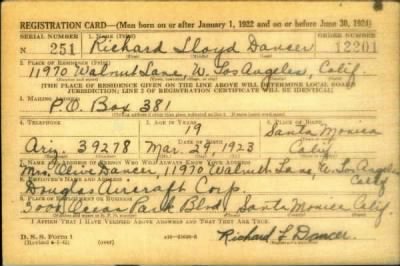 REGISTRATION CARD—(Men born on or after January 1, 1922 and on or before June 30, 1924)
SERIAL NUMBER 1. NAME (Print) ORDER NUMBER
N 251 Richard Lloyd Dancer 12201
2. PLACE OF RESIDENCE (Print)
11970 Walnut Lane, W. Los Angeles, Calif.
[THE PLACE OF RESIDENCE GIVEN ON THE LINE ABOVE WILL DETERMINE LOCAL BOARD
JURISDICTION; LINE 2 OF REGISTRATION CERTIFICATE WILL BE IDENTICAL]
3. MAILING ADDRESS
P.O. Box 381
4. TELEPHONE 5. AGE IN YEARS 6. PLACE OF BIRTH
19 Santa Monica
DATE OF BIRTH
Ari. 39278 Mar. 29, 1923 Calif.
7. NAME AND ADDRESS OF PERSON WHO WILL ALWAYS KNOW YOUR ADDRESS
Mrs. Olive Dancer, 11970 Walnut Lane, W. Los Angeles
8. EMPLOYER'S NAME AND ADDRESS Calif
Douglas Aircraft Corp.
9. PLACE OF EMPLOYMENT OR BUSINESS
3000 Ocean Park Blvd, Santa Monica Calif.
I AFFIRM THAT I HAVE VERIFIED ABOVE ANSWERS AND THAT THEY ARE TRUE.
D. S. S. Form 1
Richard L. Dancer